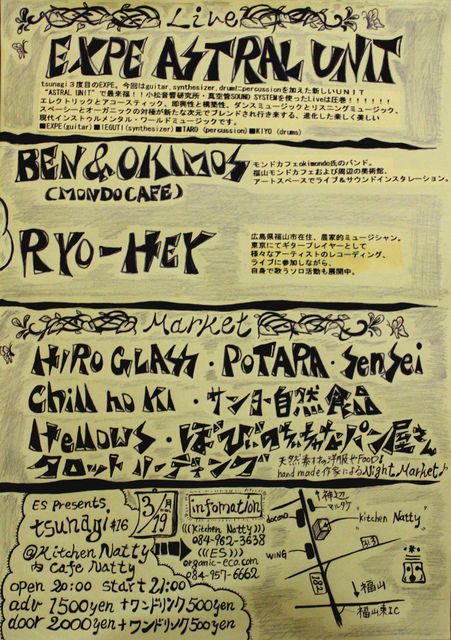 Live
EXPE ASTRAL UNIT
tsunagi3度目のEXPE。今回はguitar,synthesizer,drumにpercussionを加えた新しいUNIT
"ASTRAL UNIT" で最来福!!小松音響研究所・真空管SOUND SYSTEMを使ったLiveは圧巻!!!!!!
エレクトリックとアコースティック、即興性と構築性、ダンスミュージックとリスニングミュージック、
スペーシーとオーガニックの対極が新たな次元でブレンドされ行き来する、進化した楽しく美しい
現代インストゥルメンタル・ワールドミュージックです。
■EXPE(guitar)■IEGUTI(synthesizer)■TARO (percussion)■KIYO (drums)
BEN & OKIMOS
(MONDO CAFE)
モンドカフェokimondo氏のバンド。
福山モンドカフェおよび周辺の美術館、
アートスペースでライブ&サウンドインスタレーション。
RYO-HEY
広島県福山市在住、農家的ミュージシャン。
東京にてギタープレイヤーとして
様々なアーティストのレコーディング、
ライブに参加しながら、
自身で歌うソロ活動も展開中。
Market
HIRO GLASS・POTARA・Sensei
Chill no Ki・サンヨー自然食品
Hellows・ぼびのちっちゃなパン屋さん
タロットリーディング
天然素材の洋服やFood!
hand made作家によるNight Market♪
ES Presents
tsunagi #16
3/19
@Kitchen Natty
内 Cafe Natty
open 20:00 start 21:00
adv 1500yen +ワンドリンク500yen
door 2000yen +ワンドリンク500yen
infomation
(((Kitchen Natty)))
084-962-3638
(((ES)))
organic-eco.com
084-957-6662
神辺
docomo
マルナカ
Kitchen Natty
WING
313
182
福山
福山東IC